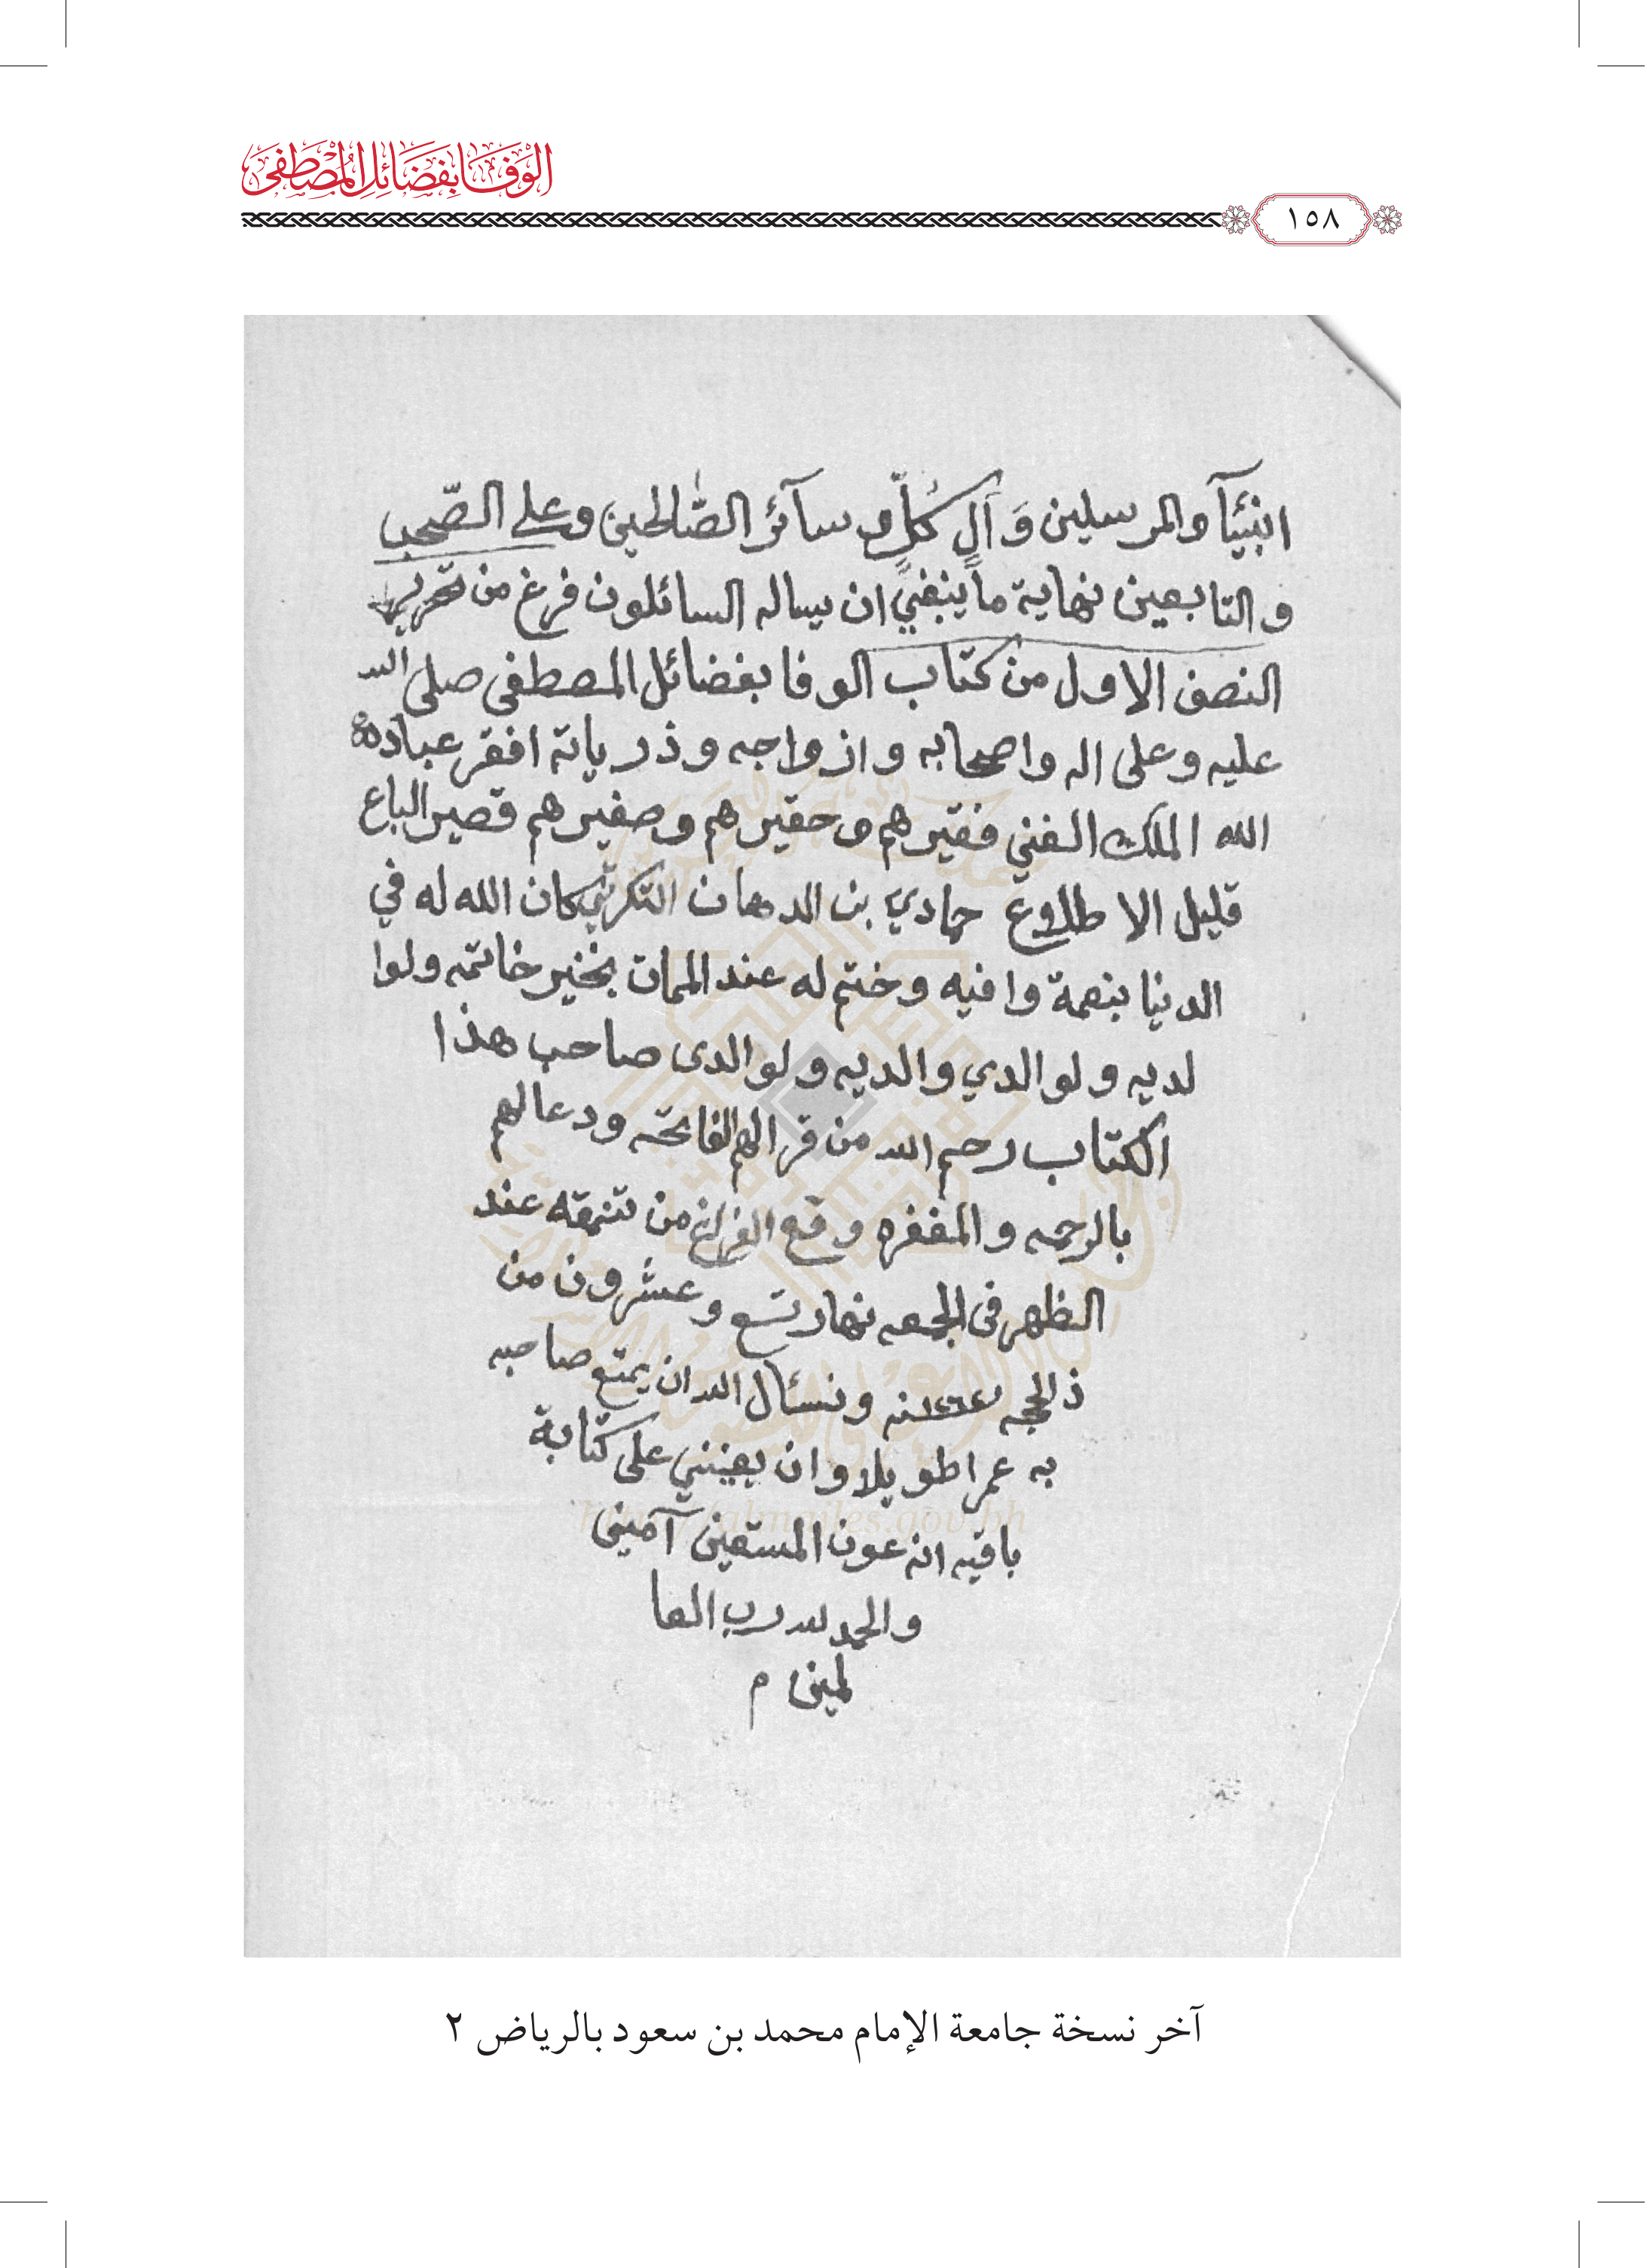 الوَفَا بِفَضَائِلِ المُصْطَفَى
١٥٨
انبيآ والمرسلين وَآلِ كُلٍّ وسآئر الصّالحين وعلى الصّحب
والتابعين نهاية ما ينبغي ان يساله السائلون فرغ من تحرير
النصف الاول من كتاب الوفا بفضائل المصطفى صلى الله
عليه وعلى اله واصحابه وازواجه وذرياته افقر عباد
الله الملك الغني فقيرهم وحقيرهم وصغيرهم قصير الباع
قليل الاطلاع حمادي بن الدهان التكريتي كان الله له في
الدنيا بنعمة وافيه وختم له عند الممات بخير خاتمه ولوا
لديه ولوالدي والديه ولوالدى صاحب هذا
الكتاب رحم الله من قرا لهم الفاتحه ودعا لهم
بالرحمه والمغفره وقع الفراغ من تنمقه عند
الظهر فى الجمعه نهار تسع وعشرون من
ذالحجه سنه ونسئال الله ان يمتع صاحبه
به عمرا طويلا وان يعينني على كتابة
باقيه انه عون المستعين آمين
والحمد لله رب العا
لمين م
آخر نسخة جامعة الإمام محمد بن سعود بالرياض ٢